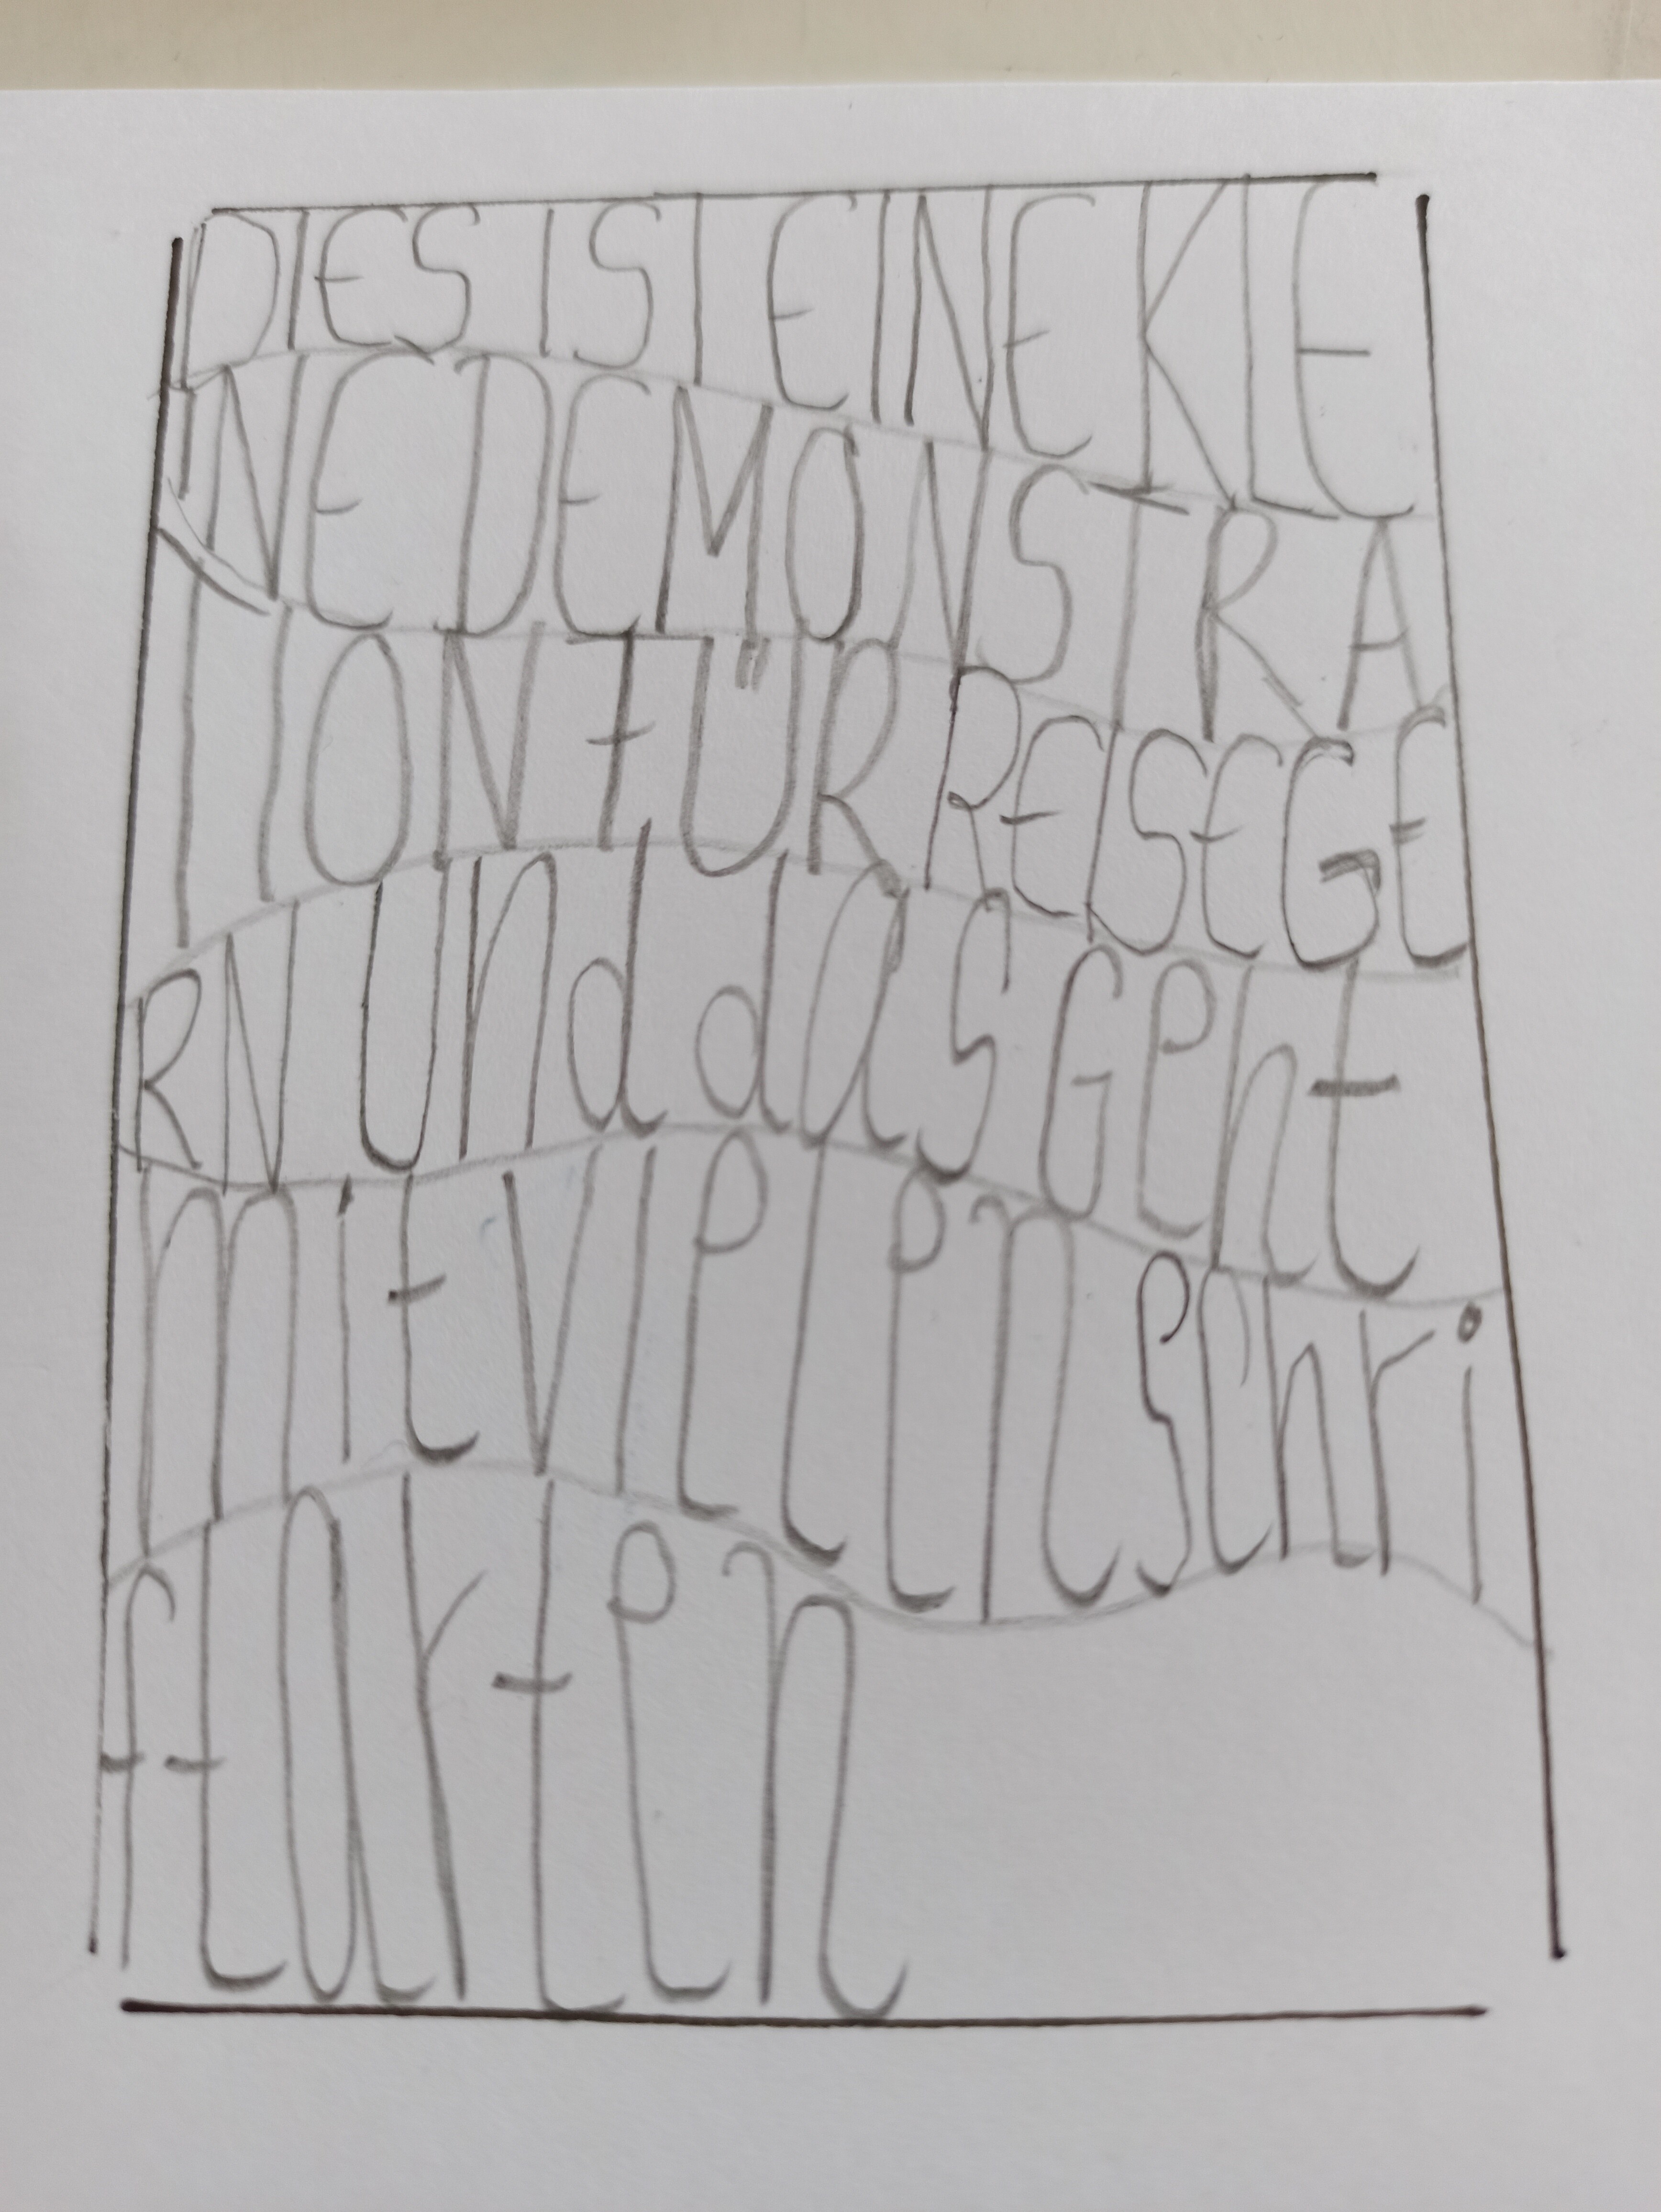 DIES IST EINE KLE
INE DEMONSTRA
TION FÜR REISEGE
RN Und das Geht
mit VIelen schri
ftarten